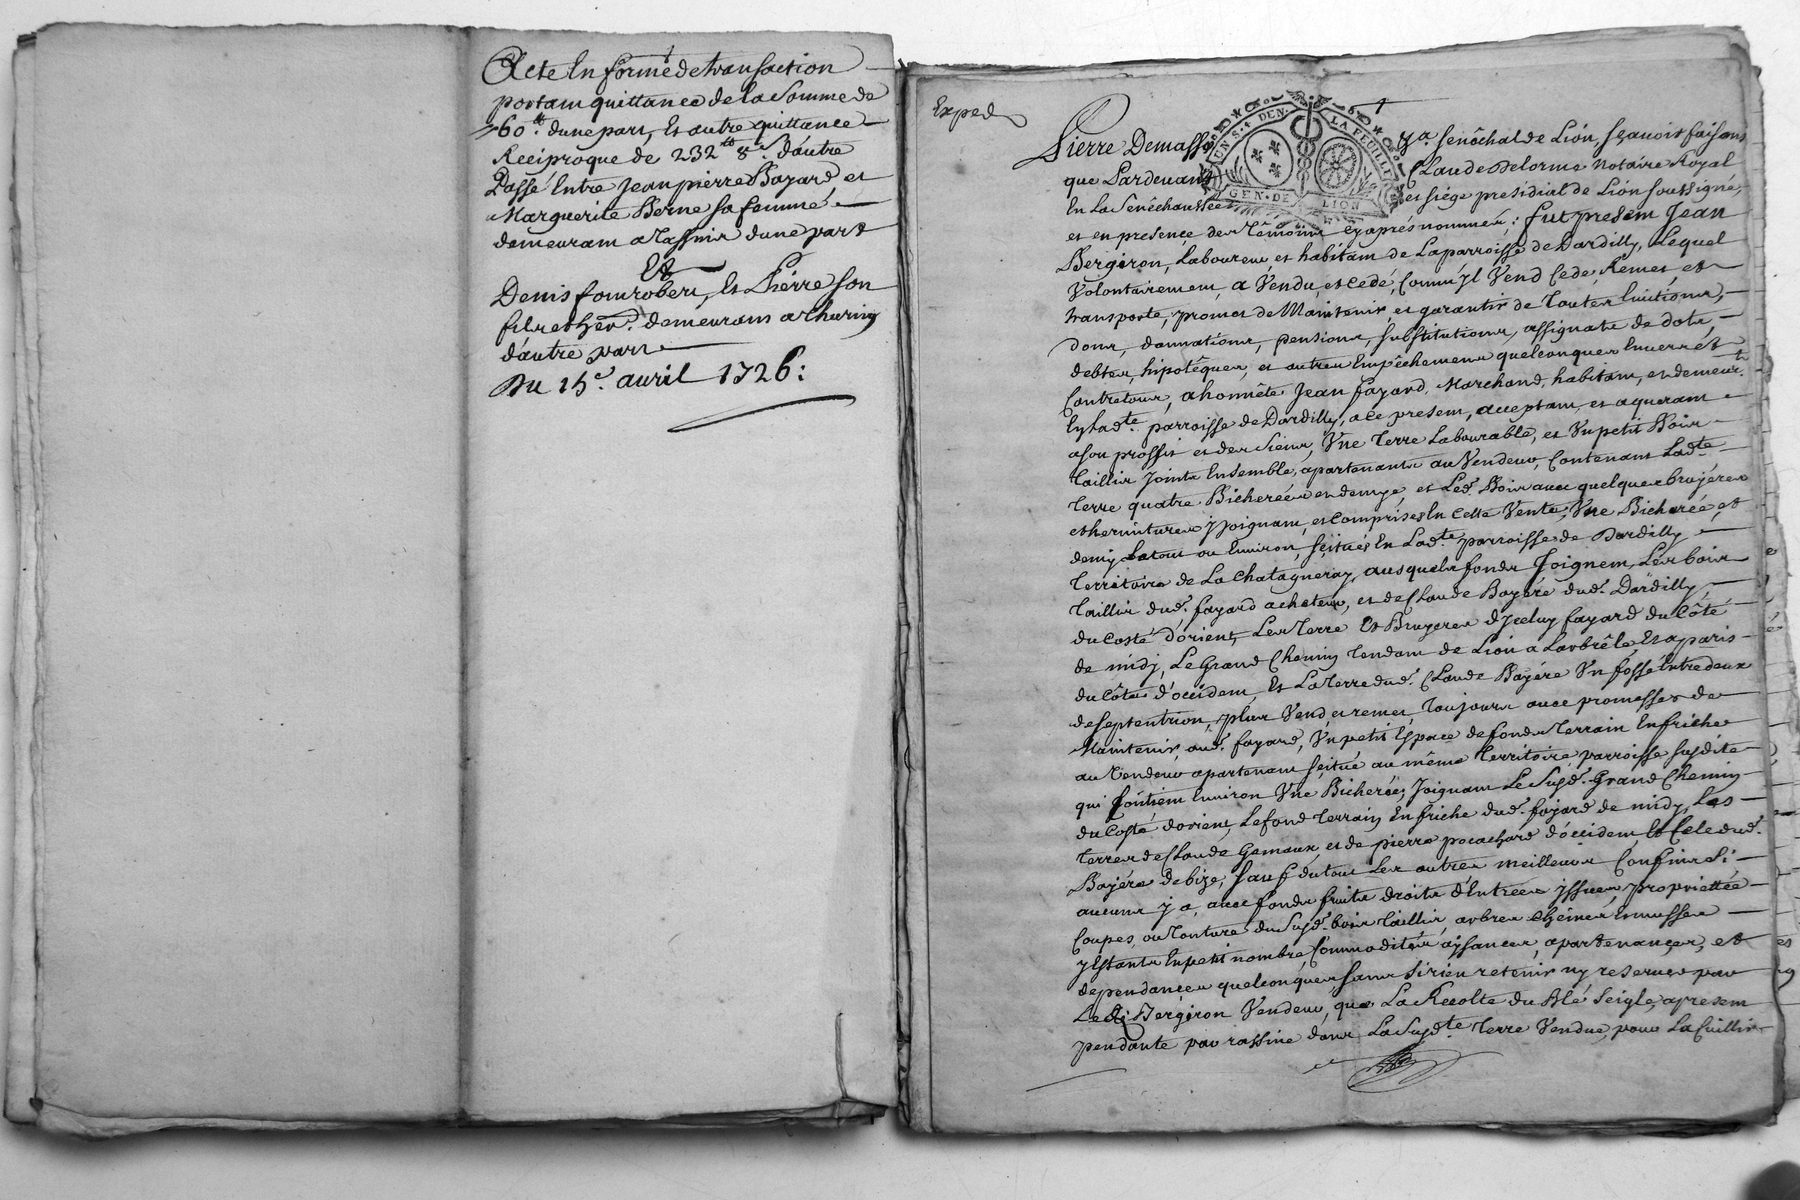 Acte En forme de transaction
portant quittance de la somme de
360.tt dune part, Et autre quittance
Reciproque de 232tt 8s. d'autre
Passé Entre Jean pierre Bayard et
Marguerite Berne sa femme
demeurant a Tassins dune part
Et
Denis fourrobert, Et Pierre son
fils et her. demeurans a Churins
d'autre part
Du 15e. avril 1726:
Exped
Pierre Demass ya. senéchal de Lion, sçavoir faisons
UN S. 4 DEN. LA FEUILLE
que Pardevant Claude Delorme Notaire Royal
GEN. DE LION
En La Senéchaussée et siége presidial de Lion soussigné,
et en presence des témoins cy aprés nommés; fut present Jean
Bergeron, Laboureur et habitant de La parroisse de Dardilly, Lequel
Volontairement, a Vendu, et Cedé, Comme jl Vend Cede, Remet, et
transporte, promet de Maintenir, et garantir de toutes Evictions,
dons, donnations, pensions, substitutions, assignats de dots,
debtes, hipotêques, et autres Empêchements quelconques Envers et
Contre tous, a honnête Jean fayard, Marchand, habitant, et demeurt.
En Ladte. parroisse de Dardilly, a ce present, acceptant, et aquerant
a son proffit et des siens, Vne Terre Labourable, et Vn petit Bois
Taillis joints Ensemble, apartenants au Vendeur, Contenant Ladte.
Terre quatre Bicherées et demye, et Led. Bois avec quelques bruyéres
et hermitures y joignant, et Comprises En Cette Vente, Vne Bicherée, et
demy Le tout ou Environ, scitués En Ladte. parroisse de Dardilly
Territoire de La Chatagneray, ausquels fonds Joignent, Les bois
Taillis dud. fayard acheteur, et de Claude Bayére dud. Dardilly,
du Costé d'orient, Les Terre Et Bruyeres d'jceluy fayard du Côté
de midj, Le Grand Chemin Tendant de Lion a Larbrêle, Et a paris
du Côté d'occident, Et La Terre dud. Claude Bayére Vn fossé Entredeux
de septentrion, plus Vend, et remet, Toujours avec promesses de
Maintenir, aud. fayard, Vn petit Espace de fonds Terrain En friche
au Vendeur apartenant scitué au même Territoire parroisse susdite
qui Contient Environ Vne Bicherée, Joignant Le susd. Grand Chemin
du Costé dorient, Le fond Terrain En friche dud. fayard de midy, Les
Terres de Claude Gemaux, et de pierre pocachard d'occident Et Cele dud.
Bayére de bize, sauf du tout Les autres meilleurs Confins si
aucuns y a, avec fonds fruits droits d'Entrées yssues, proprietée
Coupes, ou Tonture du susd. bois Taillis, arbres chênes Ennusses
y Estants En petit nombre, Commodités aysances, apartenances, et
dependances quelconques sans si rien retenir ny reserver par
Led. Bergeron Vendeur, que La Recolte du Blé seigle, apresent
pendante par rassine dans La susdte. Terre Vendue, pour La Cuillir